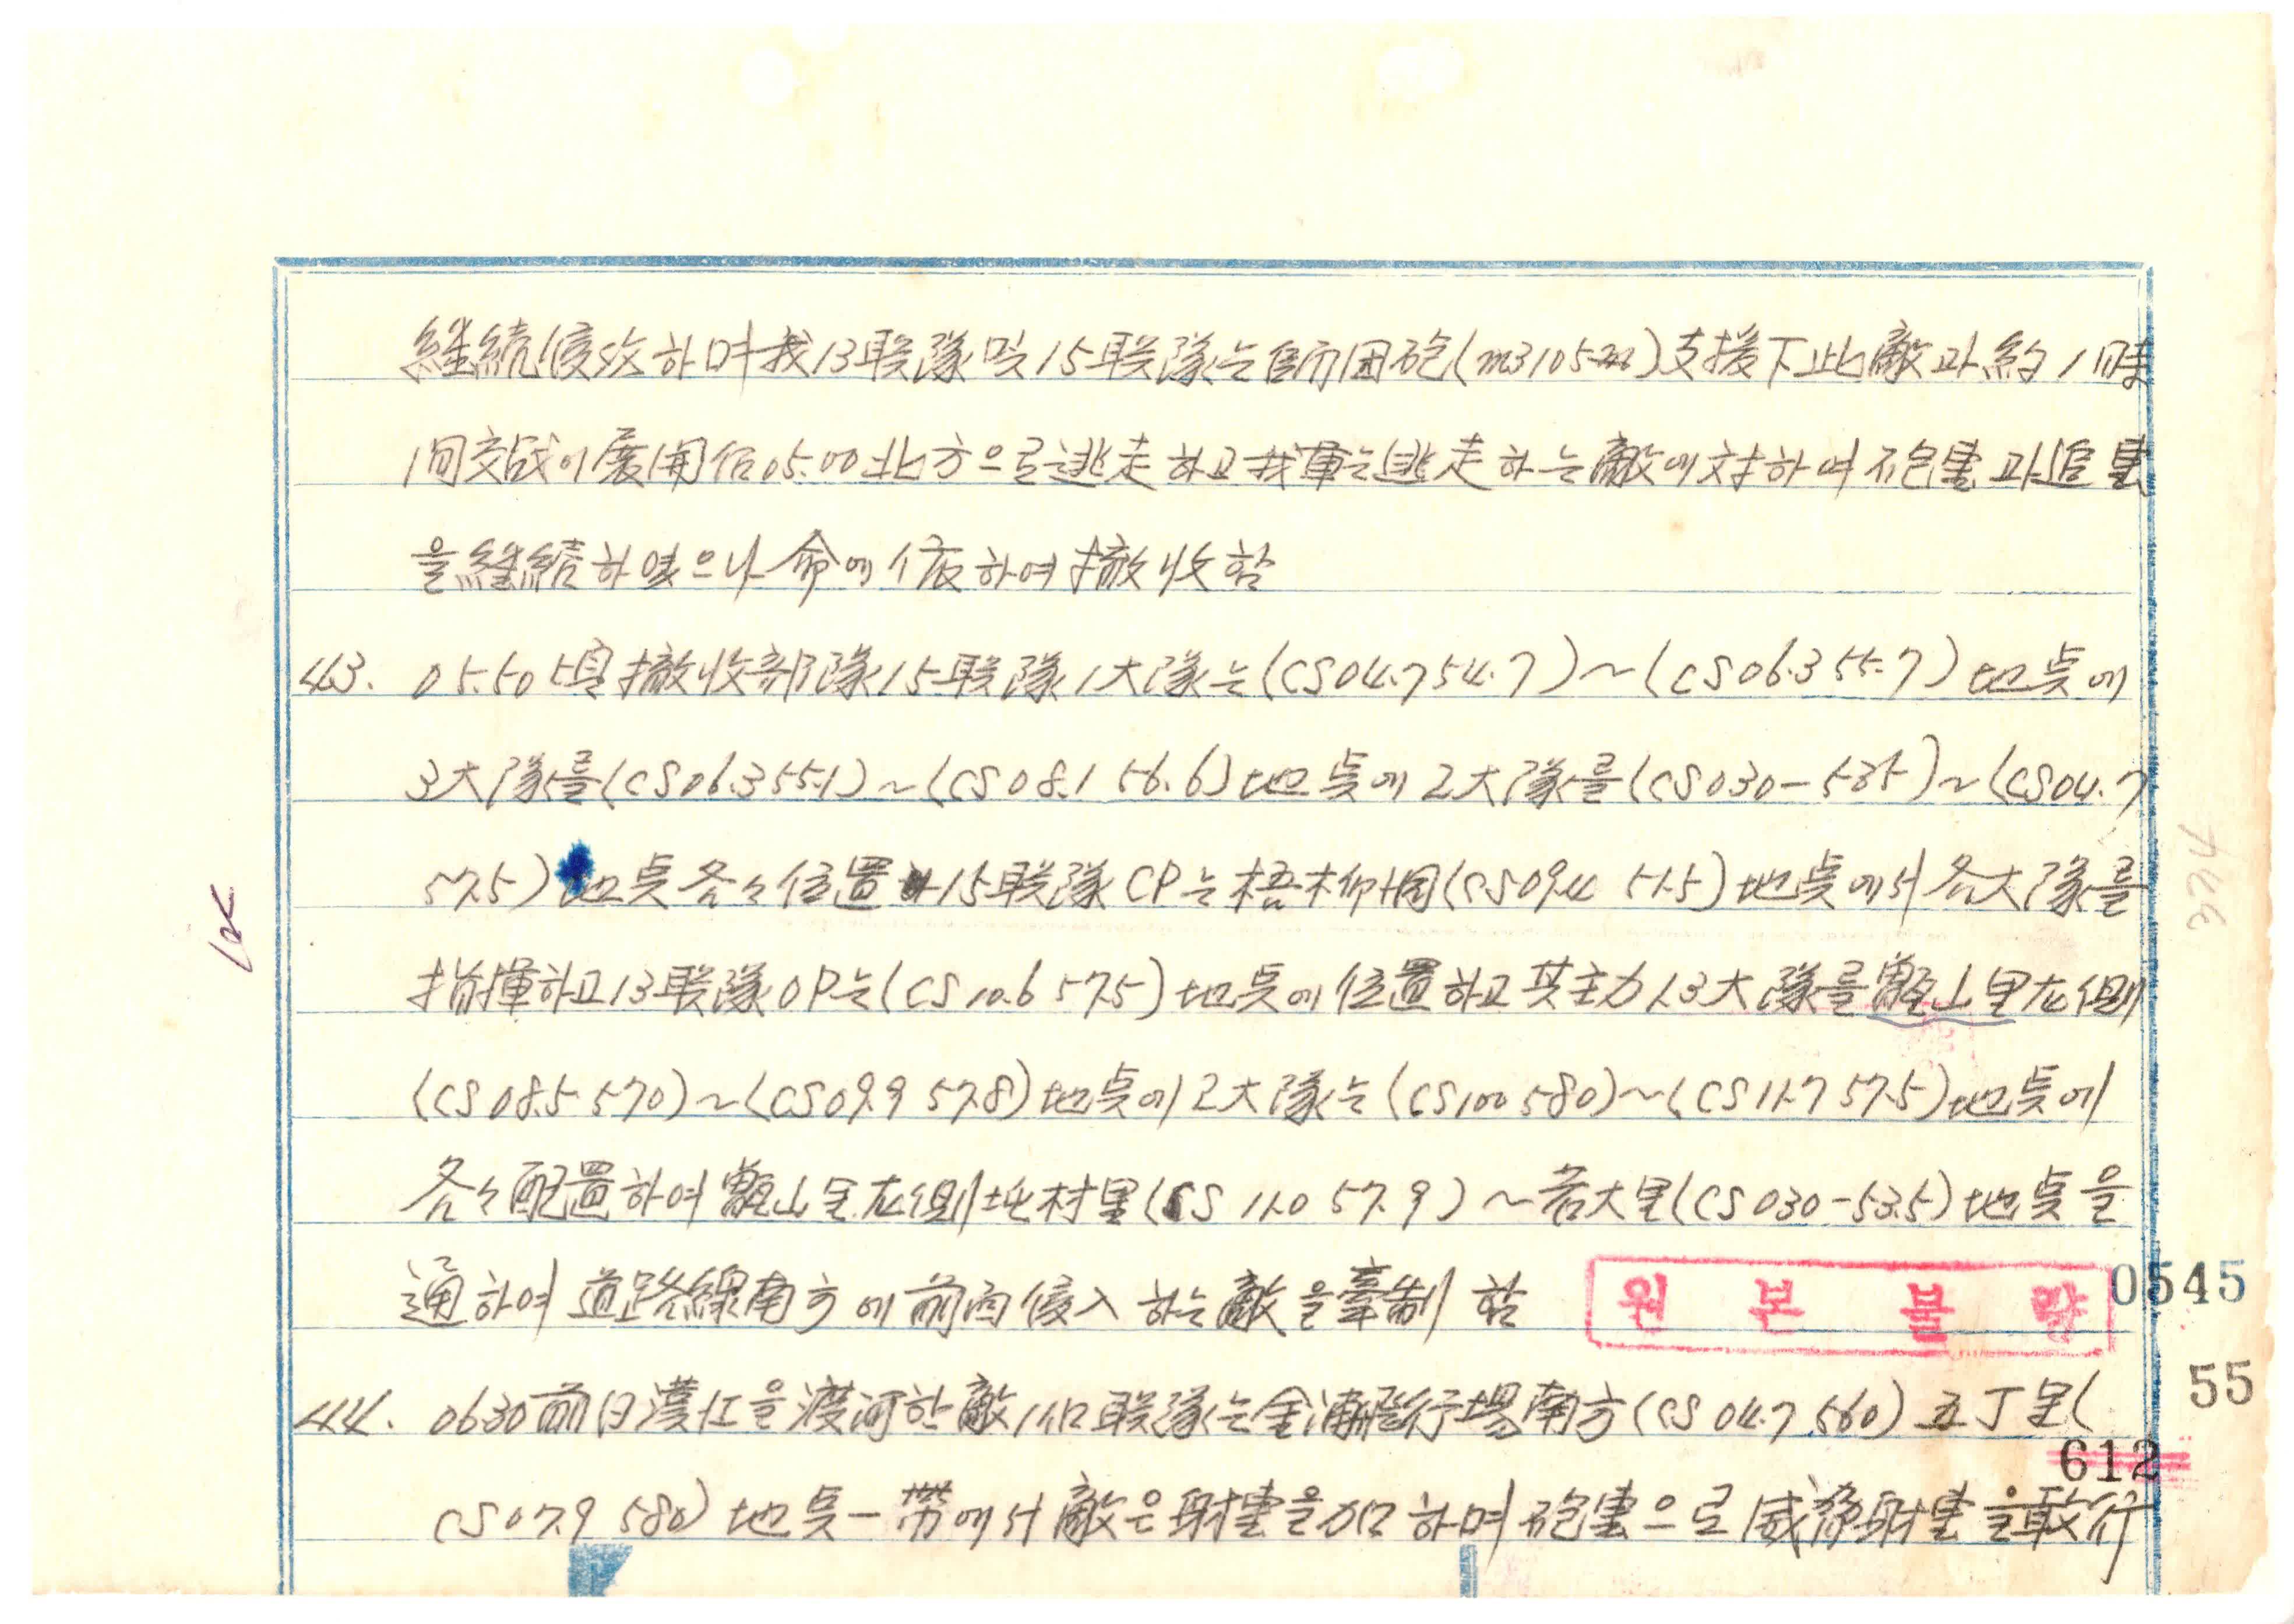 継続侵攻하며 我 13联隊 및 15联隊는 師団砲(m3 105㎜) 支援下 此敵과 約 1時
間交战이 展開后 05.00 北方으로 逃走하고 我軍는 逃走하는 敵에 対하여 砲撃과 追撃
을 継続하였으나 命에 依하여 撤收함
43. 05.50頃 撤收部隊 15联隊 1大隊는 (CS04.7 54.7)~(CS06.3 55.7) 地点에
3大隊를 (CS06.3 55.1)~(CS08.1 56.6) 地点에 2大隊를 (CS030-535)~(CS04.7
57.5) 地点 各々 位置 15联隊 CP는 梧柳洞(CS09.4 51.5) 地点에서 各大隊를
指揮하고 13联隊 OP는 (CS10.6 57.5) 地点에 位置하고 其主力 1.3大隊를 山里左側
(CS08.5 570)~(CS09.9 57.8) 地点에 2大隊는 (CS100 580)~(CS11.7 57.5) 地点에
各々 配置하여 山里左側 村里(CS 11.0 57.9)~若大里(CS030-53.5) 地点을
通하여 道路線南方에 前面侵入하는 敵을 牽制함
원본불량
0545
44. 0630 前日 漢江을 渡河한 敵 1個联隊는 金浦飛行場南方(CS 04.7 560) 五丁里(
55
612
CS 07.9 580) 地点一帯에서 敵은 射撃을 加하며 砲撃으로 威 射撃을 敢行
374